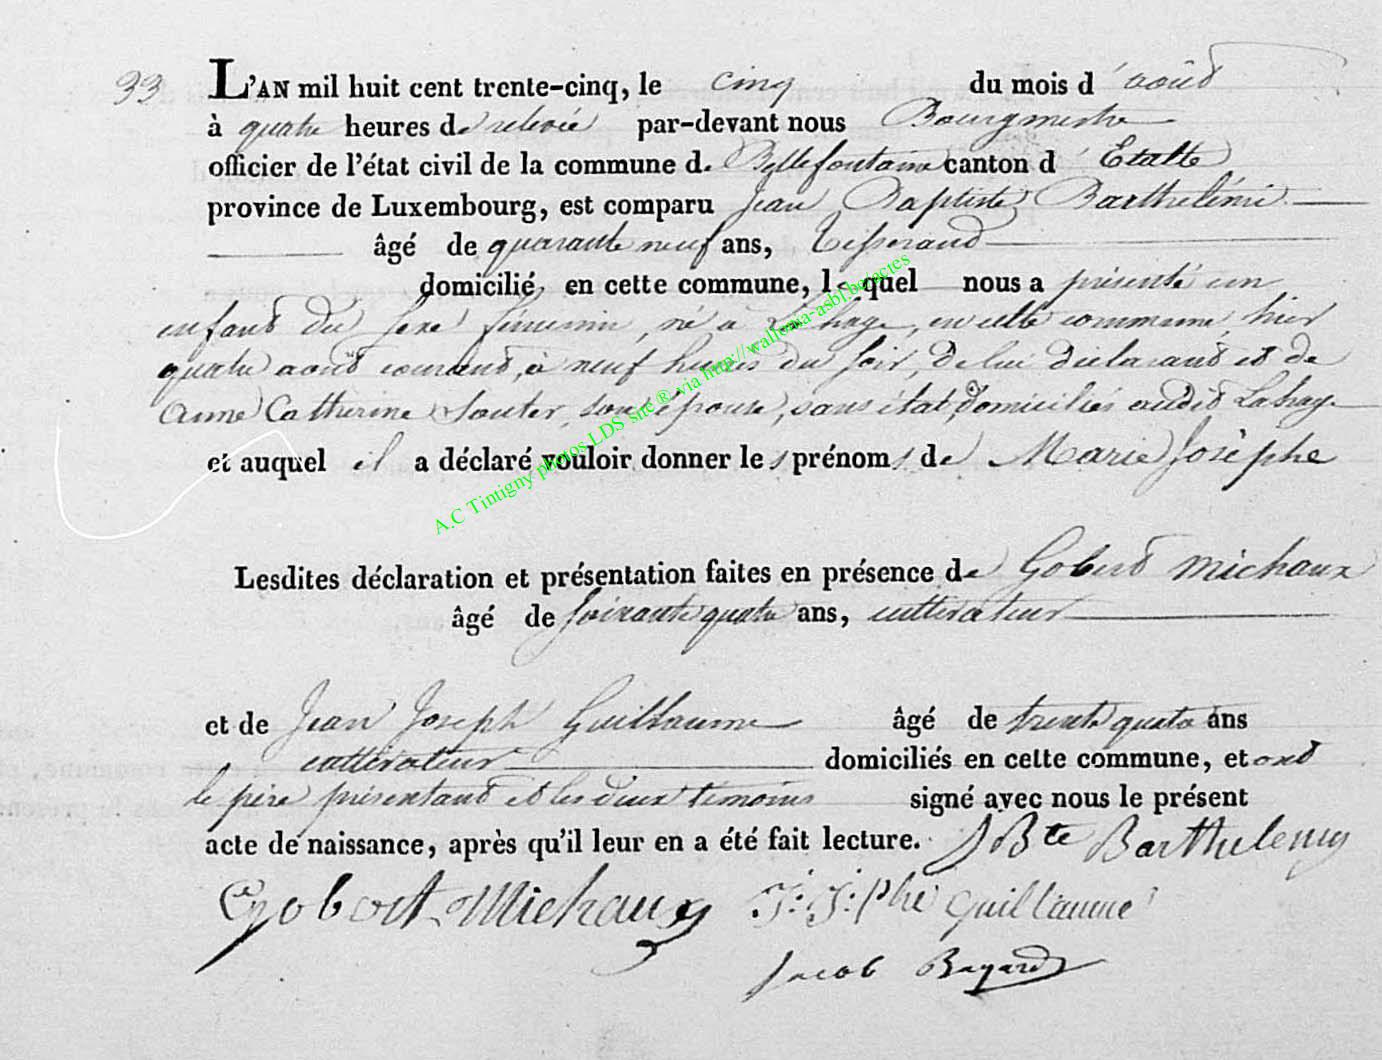 33 L'AN mil huit cent trente-cinq, le cinq du mois d'août
à quatre heures de relevée par-devant nous Bourgmestre
officier de l'état civil de la commune de Bellefontaine canton d'Etalle
province de Luxembourg, est comparu Jean Baptiste Barthelémi
âgé de quarante neuf ans, tisserand
domicilié en cette commune, lequel nous a présenté un
enfant du sexe féminin, né à Lahage, en cette commune hier
quatre août courant, à neuf heures du soir, de lui déclarant et de
Anne Catherine Souter, son épouse, sans état, domiciliés audit Lahage
et auquel il a déclaré vouloir donner les prénoms de Marie Josèphe
A.C Tintigny photos LDS site ® via http://wallonia-asbl.be/actes
Lesdites déclaration et présentation faites en présence de Gobert Michaux
âgé de soixante quatre ans, cultivateur
et de Jean Joseph Guillaume âgé de trente quatre ans
cultivateur domiciliés en cette commune, et ont
le père présentant et les deux témoins signé avec nous le présent
acte de naissance, après qu'il leur en a été fait lecture. J Bte Barthelemy
Gobert Michaux J: J:phe Guillaume
Jacob Bagard